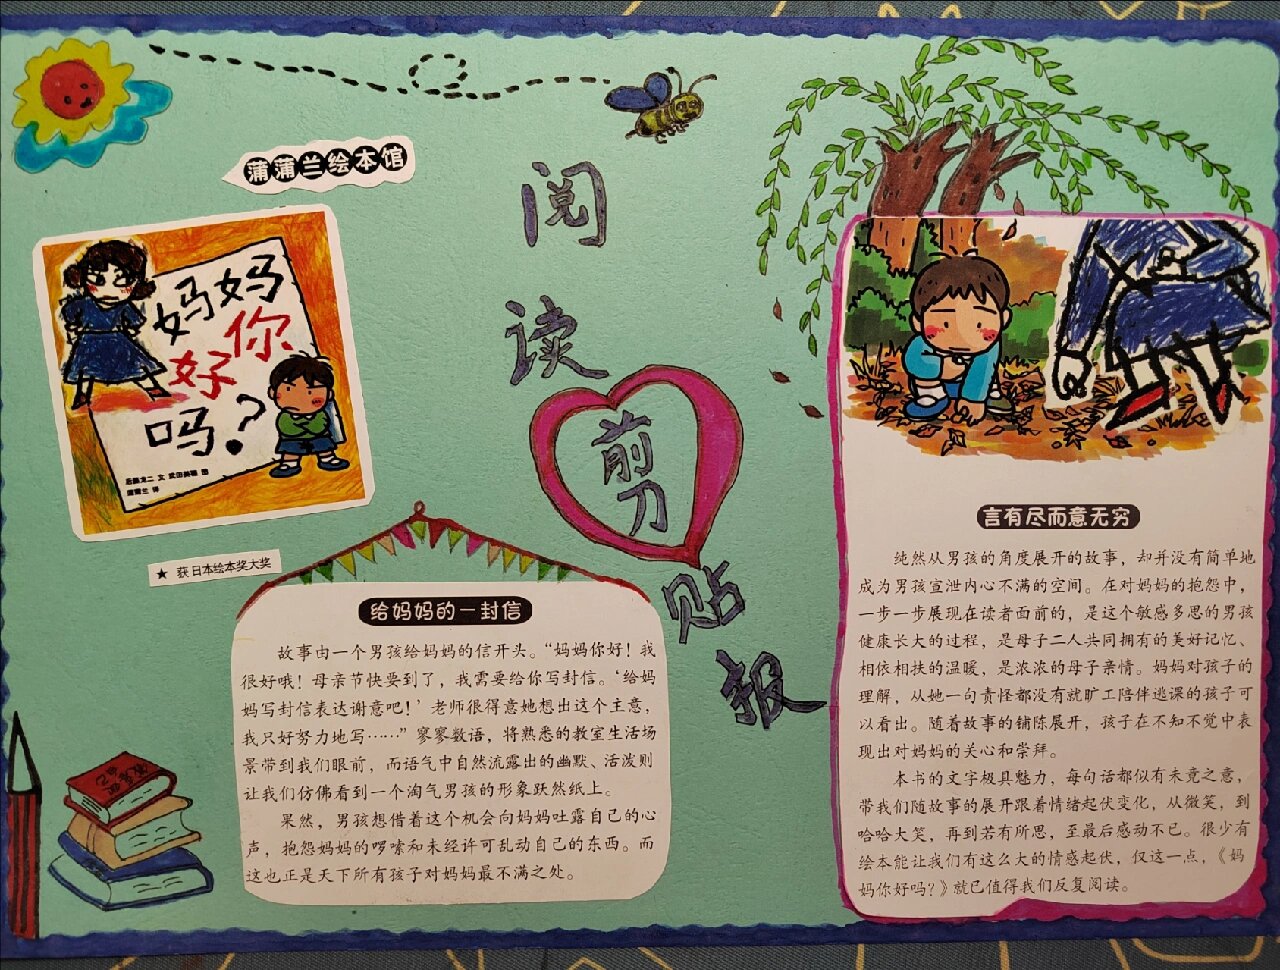 蒲蒲兰绘本馆
妈妈
你
好
吗?
★ 获日本绘本奖大奖
阅
读
剪
刀
贴
报
给妈妈的一封信
故事由一个男孩给妈妈的信开头。“妈妈你好！我
很好哦！母亲节快要到了，我需要给你写封信。‘给妈
妈写封信表达谢意吧！’老师很得意她想出这个主意，
我只好努力地写……”寥寥数语，将熟悉的教室生活场
景带到我们眼前，而语气中自然流露出的幽默、活泼则
让我们仿佛看到一个淘气男孩的形象跃然纸上。
果然，男孩想借着这个机会向妈妈吐露自己的心
声，抱怨妈妈的啰嗦和未经许可乱动自己的东西。而
这也正是天下所有孩子对妈妈最不满之处。
言有尽而意无穷
纯然从男孩的角度展开的故事，却并没有简单地
成为男孩宣泄内心不满的空间。在对妈妈的抱怨中，
一步一步展现在读者面前的，是这个敏感多思的男孩
健康长大的过程，是母子二人共同拥有的美好记忆、
相依相扶的温暖，是浓浓的母子亲情。妈妈对孩子的
理解，从她一句责怪都没有就旷工陪伴逃课的孩子可
以看出。随着故事的铺陈展开，孩子在不知不觉中表
现出对妈妈的关心和崇拜。
本书的文字极具魅力，每句话都似有未竟之意，
带我们随故事的展开跟着情绪起伏变化，从微笑，到
哈哈大笑，再到若有所思，至最后感动不已。很少有
绘本能让我们有这么大的情感起伏，仅这一点，《妈
妈你好吗？》就已值得我们反复阅读。